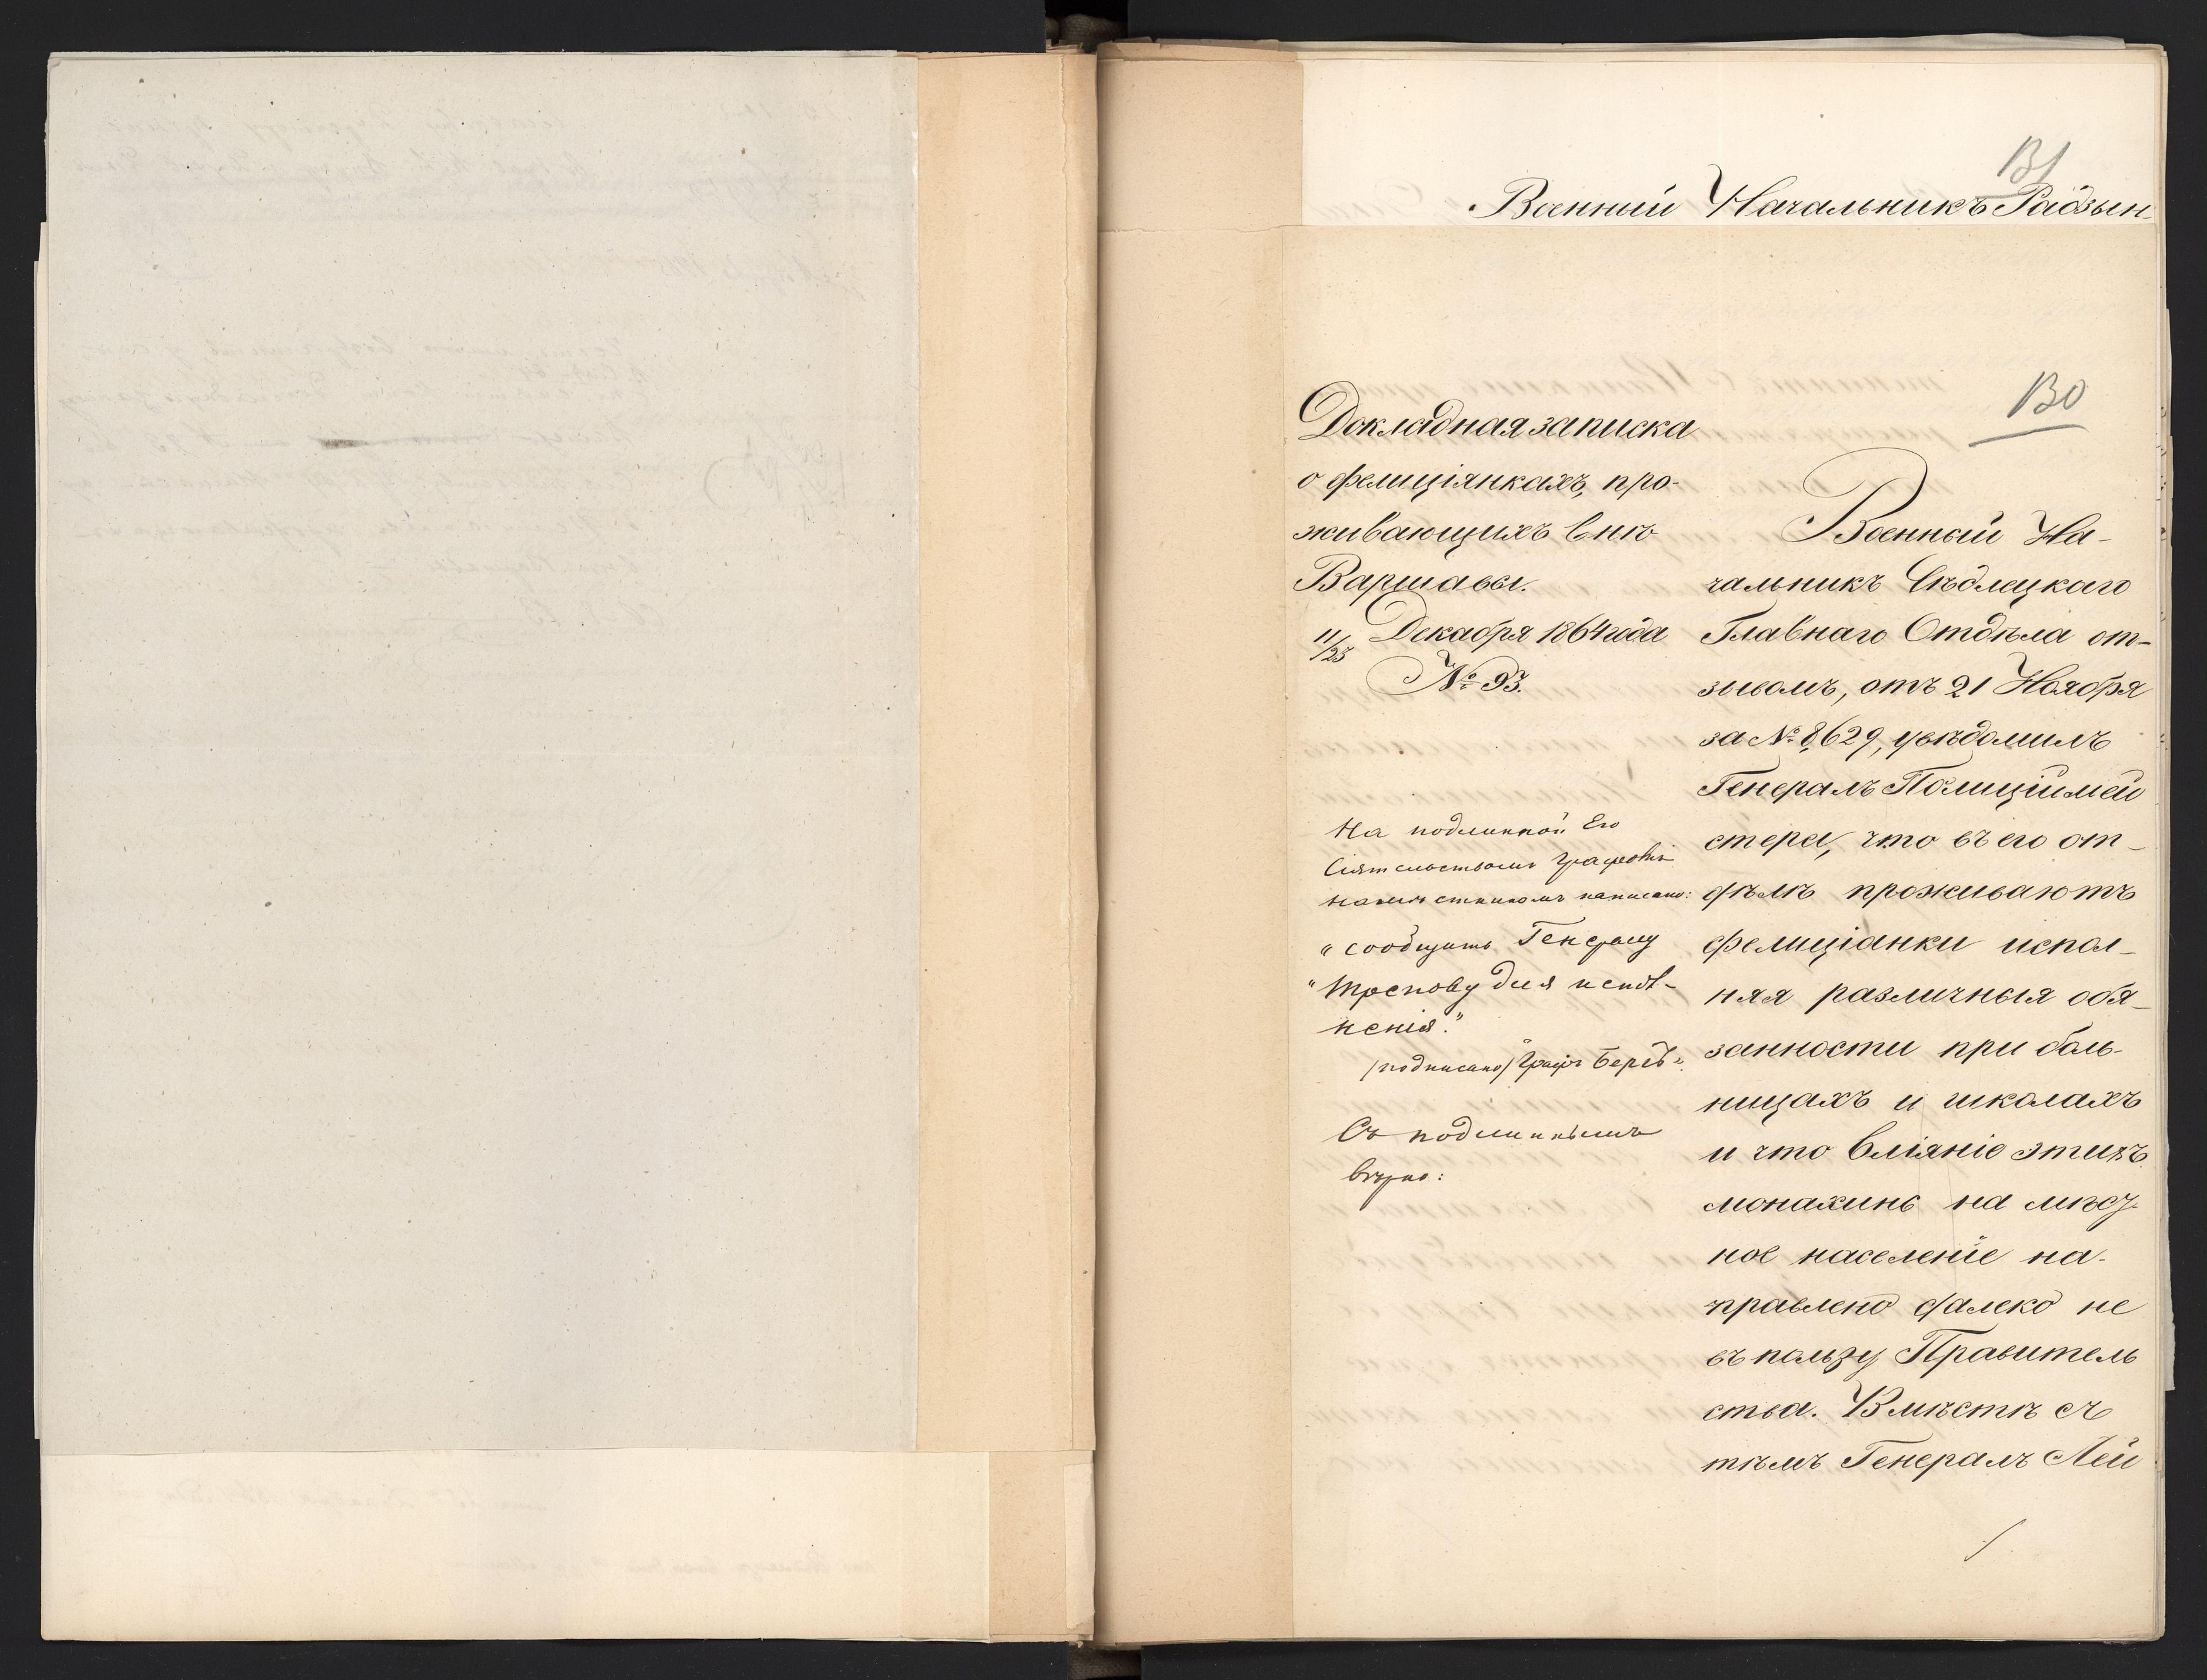 131
Военный Начальникъ Радзын-
130
Докладная записка
о фелиціянкахъ, про-
живающихъ внѣ
Варшавы.
11/23 Декабря 1864 года
№ 93.
На подлинной Его
Сіятельствомъ Графомъ
Намѣстникомъ написано:
"сообщить Генералу
"Трепову для исполненія."
/подписано/ "Графъ Бергъ".
Съ подлиннымъ
вѣрно:
Военный На-
чальникъ Сѣдлецкаго
Главнаго Отдѣла от-
зывомъ, отъ 21 Ноября
за № 8629, увѣдомилъ
Генералъ Полиціймей
стера, что въ его от-
дѣлѣ проживаютъ
фелиціанки испол-
няя различныя обя-
занности при боль-
ницахъ и школахъ
и что вліяніе этихъ
монахинь на мѣст-
ное населеніе на-
правлено далеко не
въ пользу Правитель
ства. Вмѣстѣ съ
тѣмъ Генералъ Лей